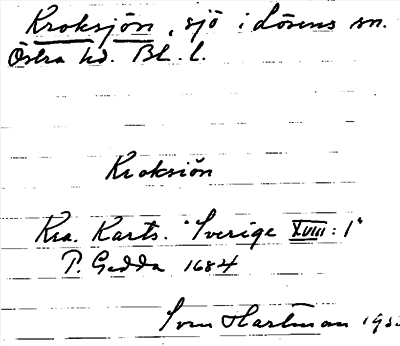 Kroksjön, sjö i Lösens sn.
Östra hd. Bl. l.
Kroksiön
Kra. Karts. "Sverige XVIII: 1"
P. Gedda 1684
Sven Hartman